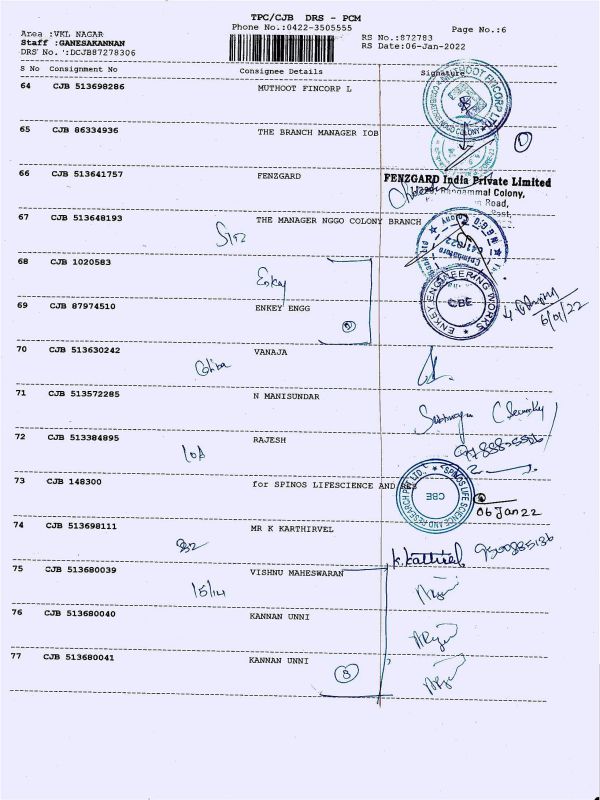 TPC/CJB DRS - PCM
Area :VKL NAGAR
Phone No.:0422-3505555
Page No.:6
Staff :GANESAKANNAN
RS No.:872783
DRS No.':DCJB87278306
RS Date:06-Jan-2022
S No Consignment No Consignee Details Signature
64 CJB 513698286 MUTHOOT FINCORP L
MUTHOOT FINCORP LTD
65 CJB 86334936 THE BRANCH MANAGER IOB
66 CJB 513641757 FENZGARD
FENZGARD India Private Limited
Colony,
Road,
67 CJB 513648193 THE MANAGER NGGO COLONY BRANCH
68 CJB 1020583
Enkey
69 CJB 87974510 ENKEY ENGG
ENKEY ENGINEERING WORKS
CBE
6/01/22
70 CJB 513630242 VANAJA
71 CJB 513572285 N MANISUNDAR
72 CJB 513384895 RAJESH
73 CJB 148300 for SPINOS LIFESCIENCE AND
SPINOS LIFE SCIENCE AND RESEARCH PVT LTD.,
CBE
06 Jan 22
74 CJB 513698111 MR K KARTHIRVEL
K. Kathirvel 9500885136
75 CJB 513680039 VISHNU MAHESWARAN
15/14
76 CJB 513680040 KANNAN UNNI
77 CJB 513680041 KANNAN UNNI